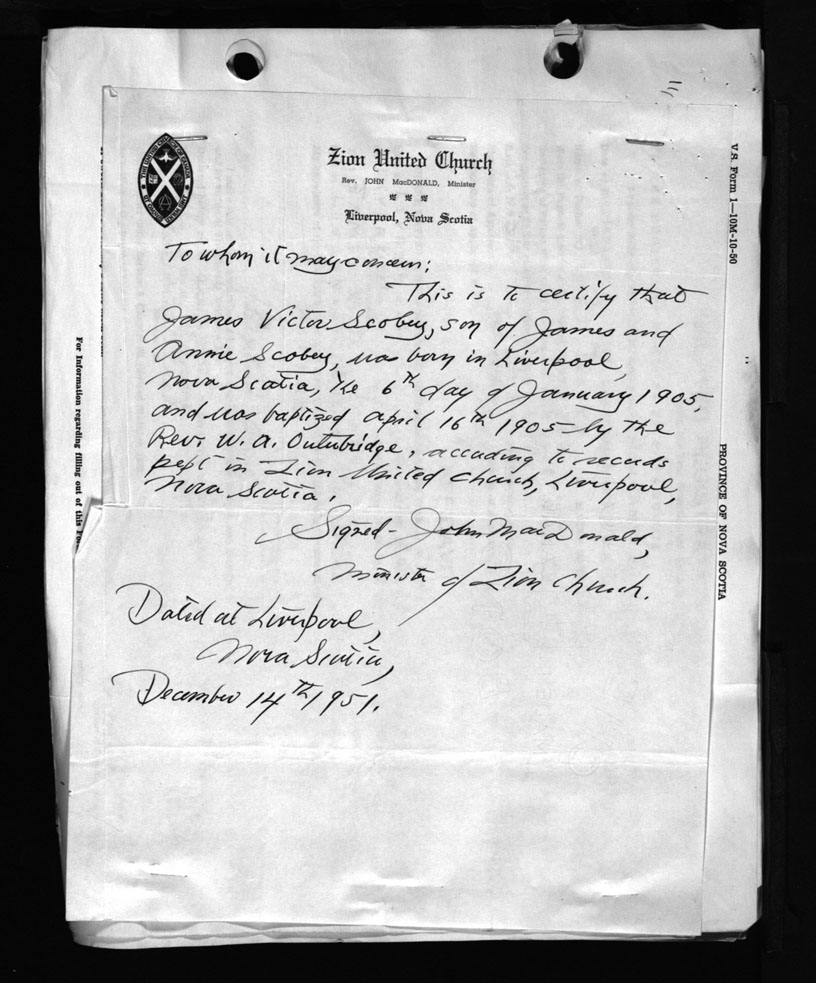 Zion United Church
Rev. JOHN MacDONALD, Minister
Liverpool, Nova Scotia
To whom it may concern;
This is to certify that
James Victor Scobey, son of James and
Annie Scobey, was born in Liverpool,
Nova Scotia, the 6th day of January 1905,
and was baptized april 16th 1905 by the
Rev. W. A. Outerbridge, according to records
kept in Zion United Church, Liverpool,
Nova Scotia.
Signed - John MacDonald,
Minister of Zion Church.
Dated at Liverpool,
Nova Scotia,
December 14th 1951.
V.S. Form 1—10M-10-50
PROVINCE OF NOVA SCOTIA
For Information regarding filling out of this